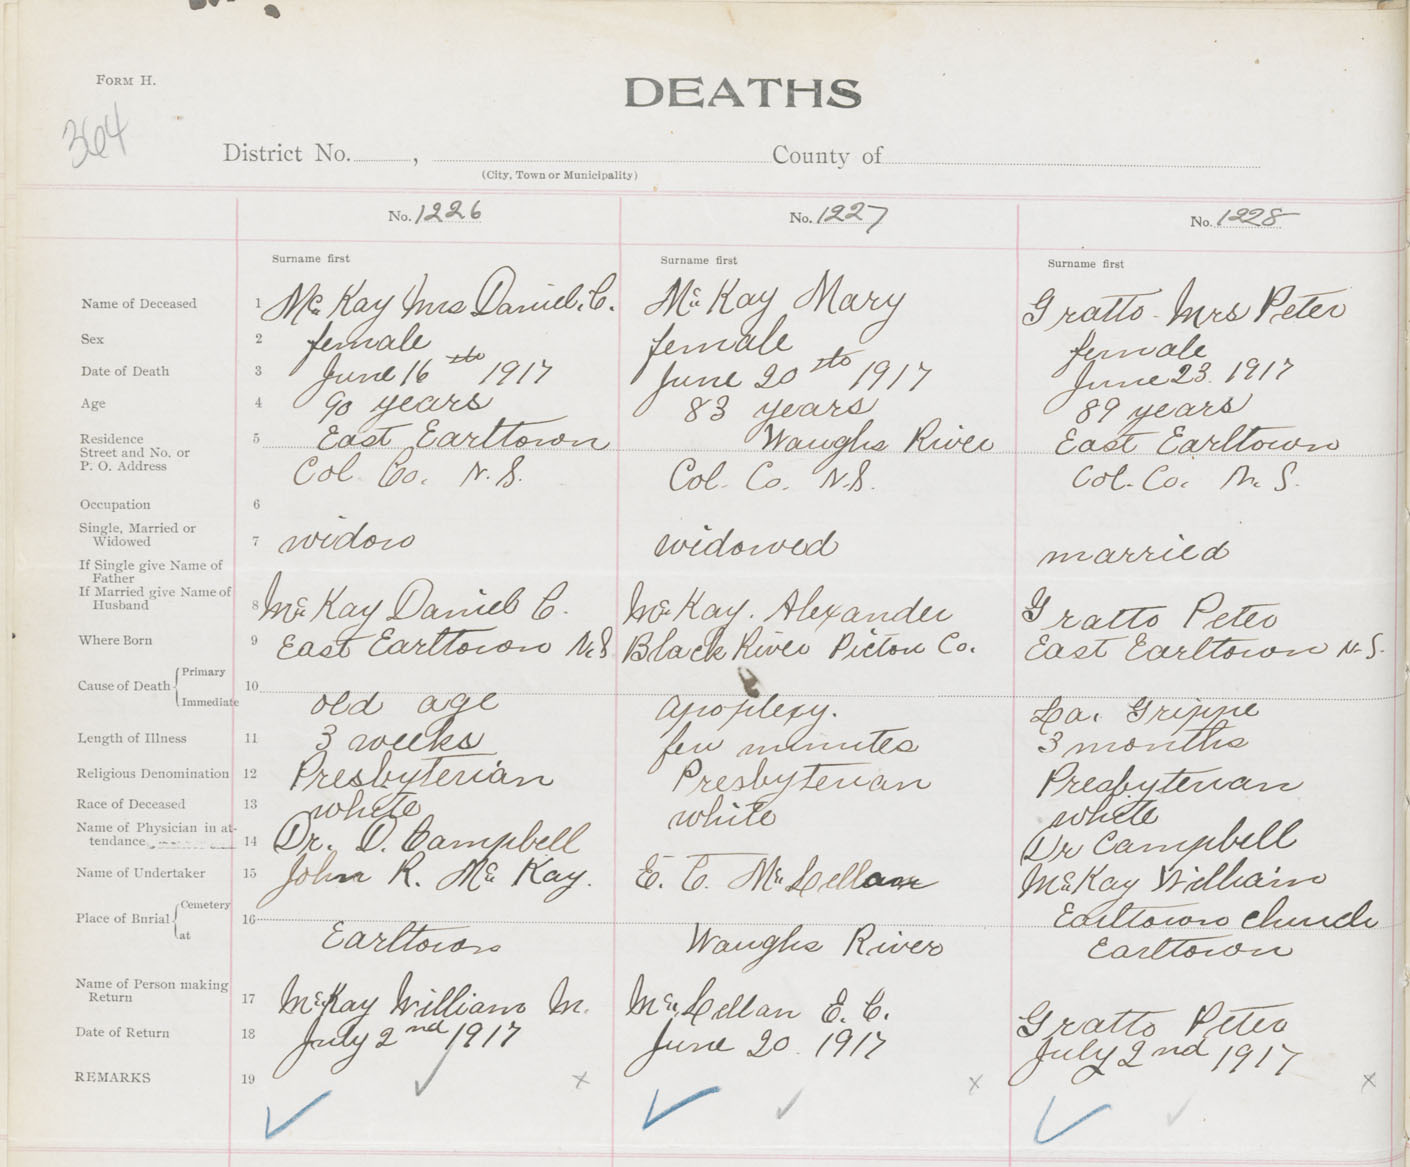 FORM H.
DEATHS
364
District No. , County of
(City, Town or Municipality)
No. 1226 No. 1227 No. 1228
Surname first Surname first Surname first
Name of Deceased 1 Mc Kay Mrs Daniel. C. Mc Kay Mary Gratto Mrs Peter
Sex 2 female female female
Date of Death 3 June 16th 1917 June 20th 1917 June 23. 1917
Age 4 90 years 83 years 89 years
Residence 5 East Earltown Waughs River East Earltown
Street and No. or
P. O. Address Col. Co. N.S. Col. Co. N.S. Col. Co. N.S.
Occupation 6
Single, Married or
Widowed 7 widow widowed married
If Single give Name of
Father
If Married give Name of
Husband 8 McKay Daniel C. McKay. Alexander Gratto Peter
Where Born 9 East Earltown N.S Black River Pictou Co. East Earltown N.S.
Cause of Death Primary 10
Immediate old age apoplexy. La. Grippe
Length of Illness 11 3 weeks few minutes 3 months
Religious Denomination 12 Presbyterian Presbyterian Presbyterian
Race of Deceased 13 white white white
Name of Physician in at-
tendance 14 Dr. D. Campbell Dr Campbell
Name of Undertaker 15 John R. McKay. E. C. McLellan McKay William
Place of Burial Cemetery 16 Earltown church
at Earltown Waughs River Earltown
Name of Person making
Return 17 McKay William M. McLellan E. C. Gratto Peter
Date of Return 18 July 2nd 1917 June 20. 1917 July 2nd 1917
REMARKS 19 x x x